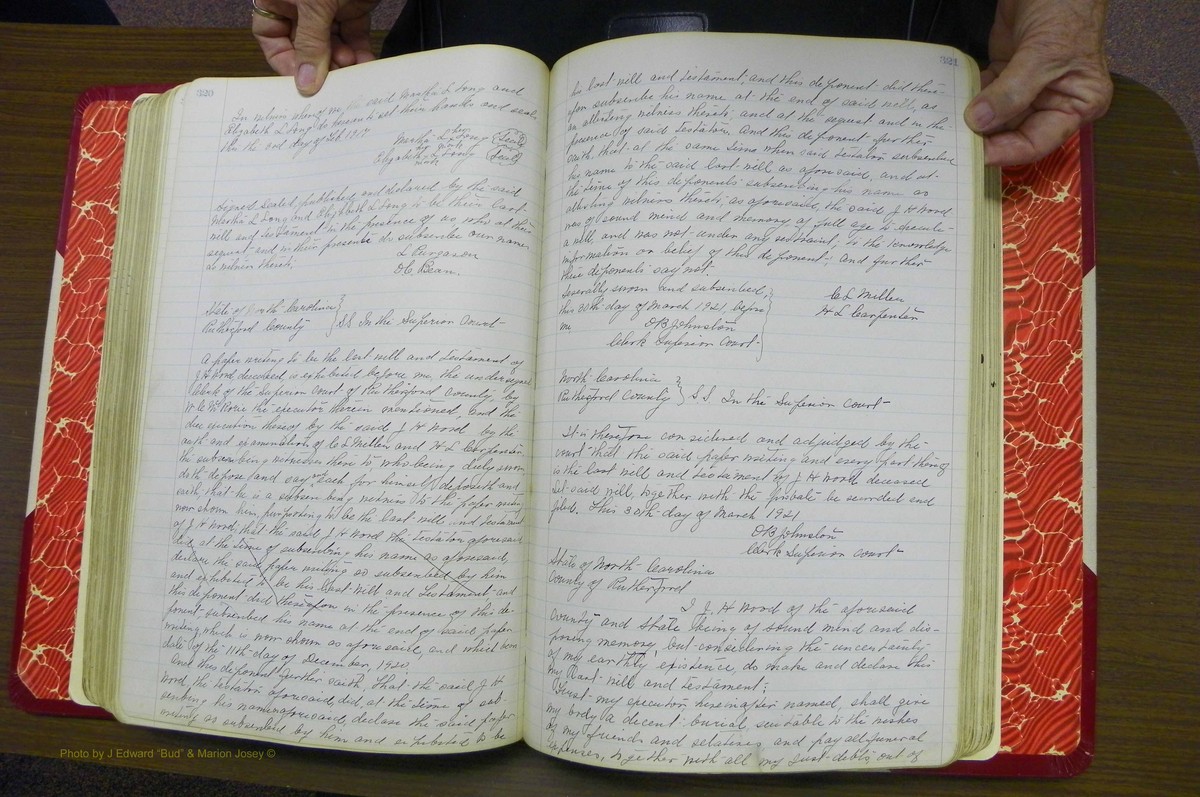 320
In witness whereof we the said Martha L Long and
Elizabeth L Long do hereunto set their hands and seals
this the 3rd day of Feb 1917
her
Martha L x Long (Seal)
mark
her
Elizabeth x Long (Seal)
mark
Signed sealed published and declared by the said
Martha L Long and Elizabeth L Long to be their last
will and testament in the presence of us who at their
request and in their presence do subscribe our names
as witness thereto,
L Purgason
O C Bean.
State of North Carolina
Rutherford County } S.S. In the Superior Court
A paper writing to be the last will and testament of
J H Wood deceased, is exhibited before me, the undersigned
Clerk of the Superior Court of Rutherford County, by
the executor therein mentioned, and the
due execution thereof by the said J H Wood by the
oath and examination of C L Miller and H L Carpenter
the subscribing witnesses thereto, who being duly sworn
doth depose and say each for himself deposeth and
saith, that he is a subscribing witness to the paper writing
now shown him, purporting to be the last will and testament
of J H Wood, that the said J H Wood the testator aforesaid
did, at the time of subscribing his name as aforesaid,
declare the said paper writing so subscribed by him
and exhibited to be his last will and testament and
this deponent did thereupon in the presence of this de-
ponent, subscribed his name at the end of said paper
writing, which is now shown as aforesaid, and which bears
date of the 11th day of December, 1920.
And this deponent further saith, that the said J H
Wood, the testator aforesaid, did, at the time of sub-
scribing his name aforesaid, declare the said paper
writing so subscribed by him and exhibited to be
321
his last will and testament, and this deponent did there-
upon subscribe his name at the end of said will, as
an attesting witness thereto, and at the request and in the
presence of said testator. And this deponent further
saith, that at the same time when said testator subscribed
his name to the said last will as aforesaid, and at
the time of this deponents subscribing his name as
attesting witness thereto, as aforesaid, the said J H Wood
was of sound mind and memory, of full age to execute
a will, and was not under any restraint, to the knowledge
information or belief of this deponent; and further
these deponents say not.
Severally sworn and subscribed,
this 30th day of March 1921, before
me O B Johnston
Clerk Superior Court
C L Miller
H L Carpenter
North Carolina
Rutherford County } S.S. In the Superior Court
It is therefore considered and adjudged by the
court that the said paper writing and every part thereof
is the last will and testament of J H Wood deceased
Let said will, together with the probate be recorded and
filed. This 30th day of March 1921
O B Johnston
Clerk Superior Court
State of North Carolina
County of Rutherford
I J. H Wood of the aforesaid
County and State being of sound mind and dis-
posing memory, but considering the uncertainty
of my earthly existence, do make and declare this
my Last will and testament;
First - my executor hereinafter named, shall give
my body a decent burial, suitable to the wishes
of my friends and relatives, and pay all funeral
expenses, together with all my just debts out of
Photo by J Edward "Bud" & Marion Josey ©